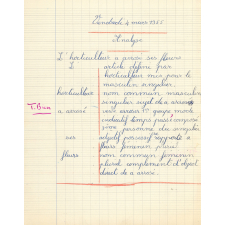 Vendredi 4 mars 1955
Analyse
L'horticulteur a arrosé ses fleurs
L' article défini pour
horticulteur mis pour le
masculin singulier
horticulteur nom commun masculin
singulier sujet de a arrosé
T. Bien
a arrosé verbe arroser 1er groupe mode
indicatif temps passé composé
3ème personne du singulier
ses adjectif possessif rapporte à
fleurs féminin pluriel
fleurs nom commun féminin
pluriel complément d'objet
direct de a arrosé